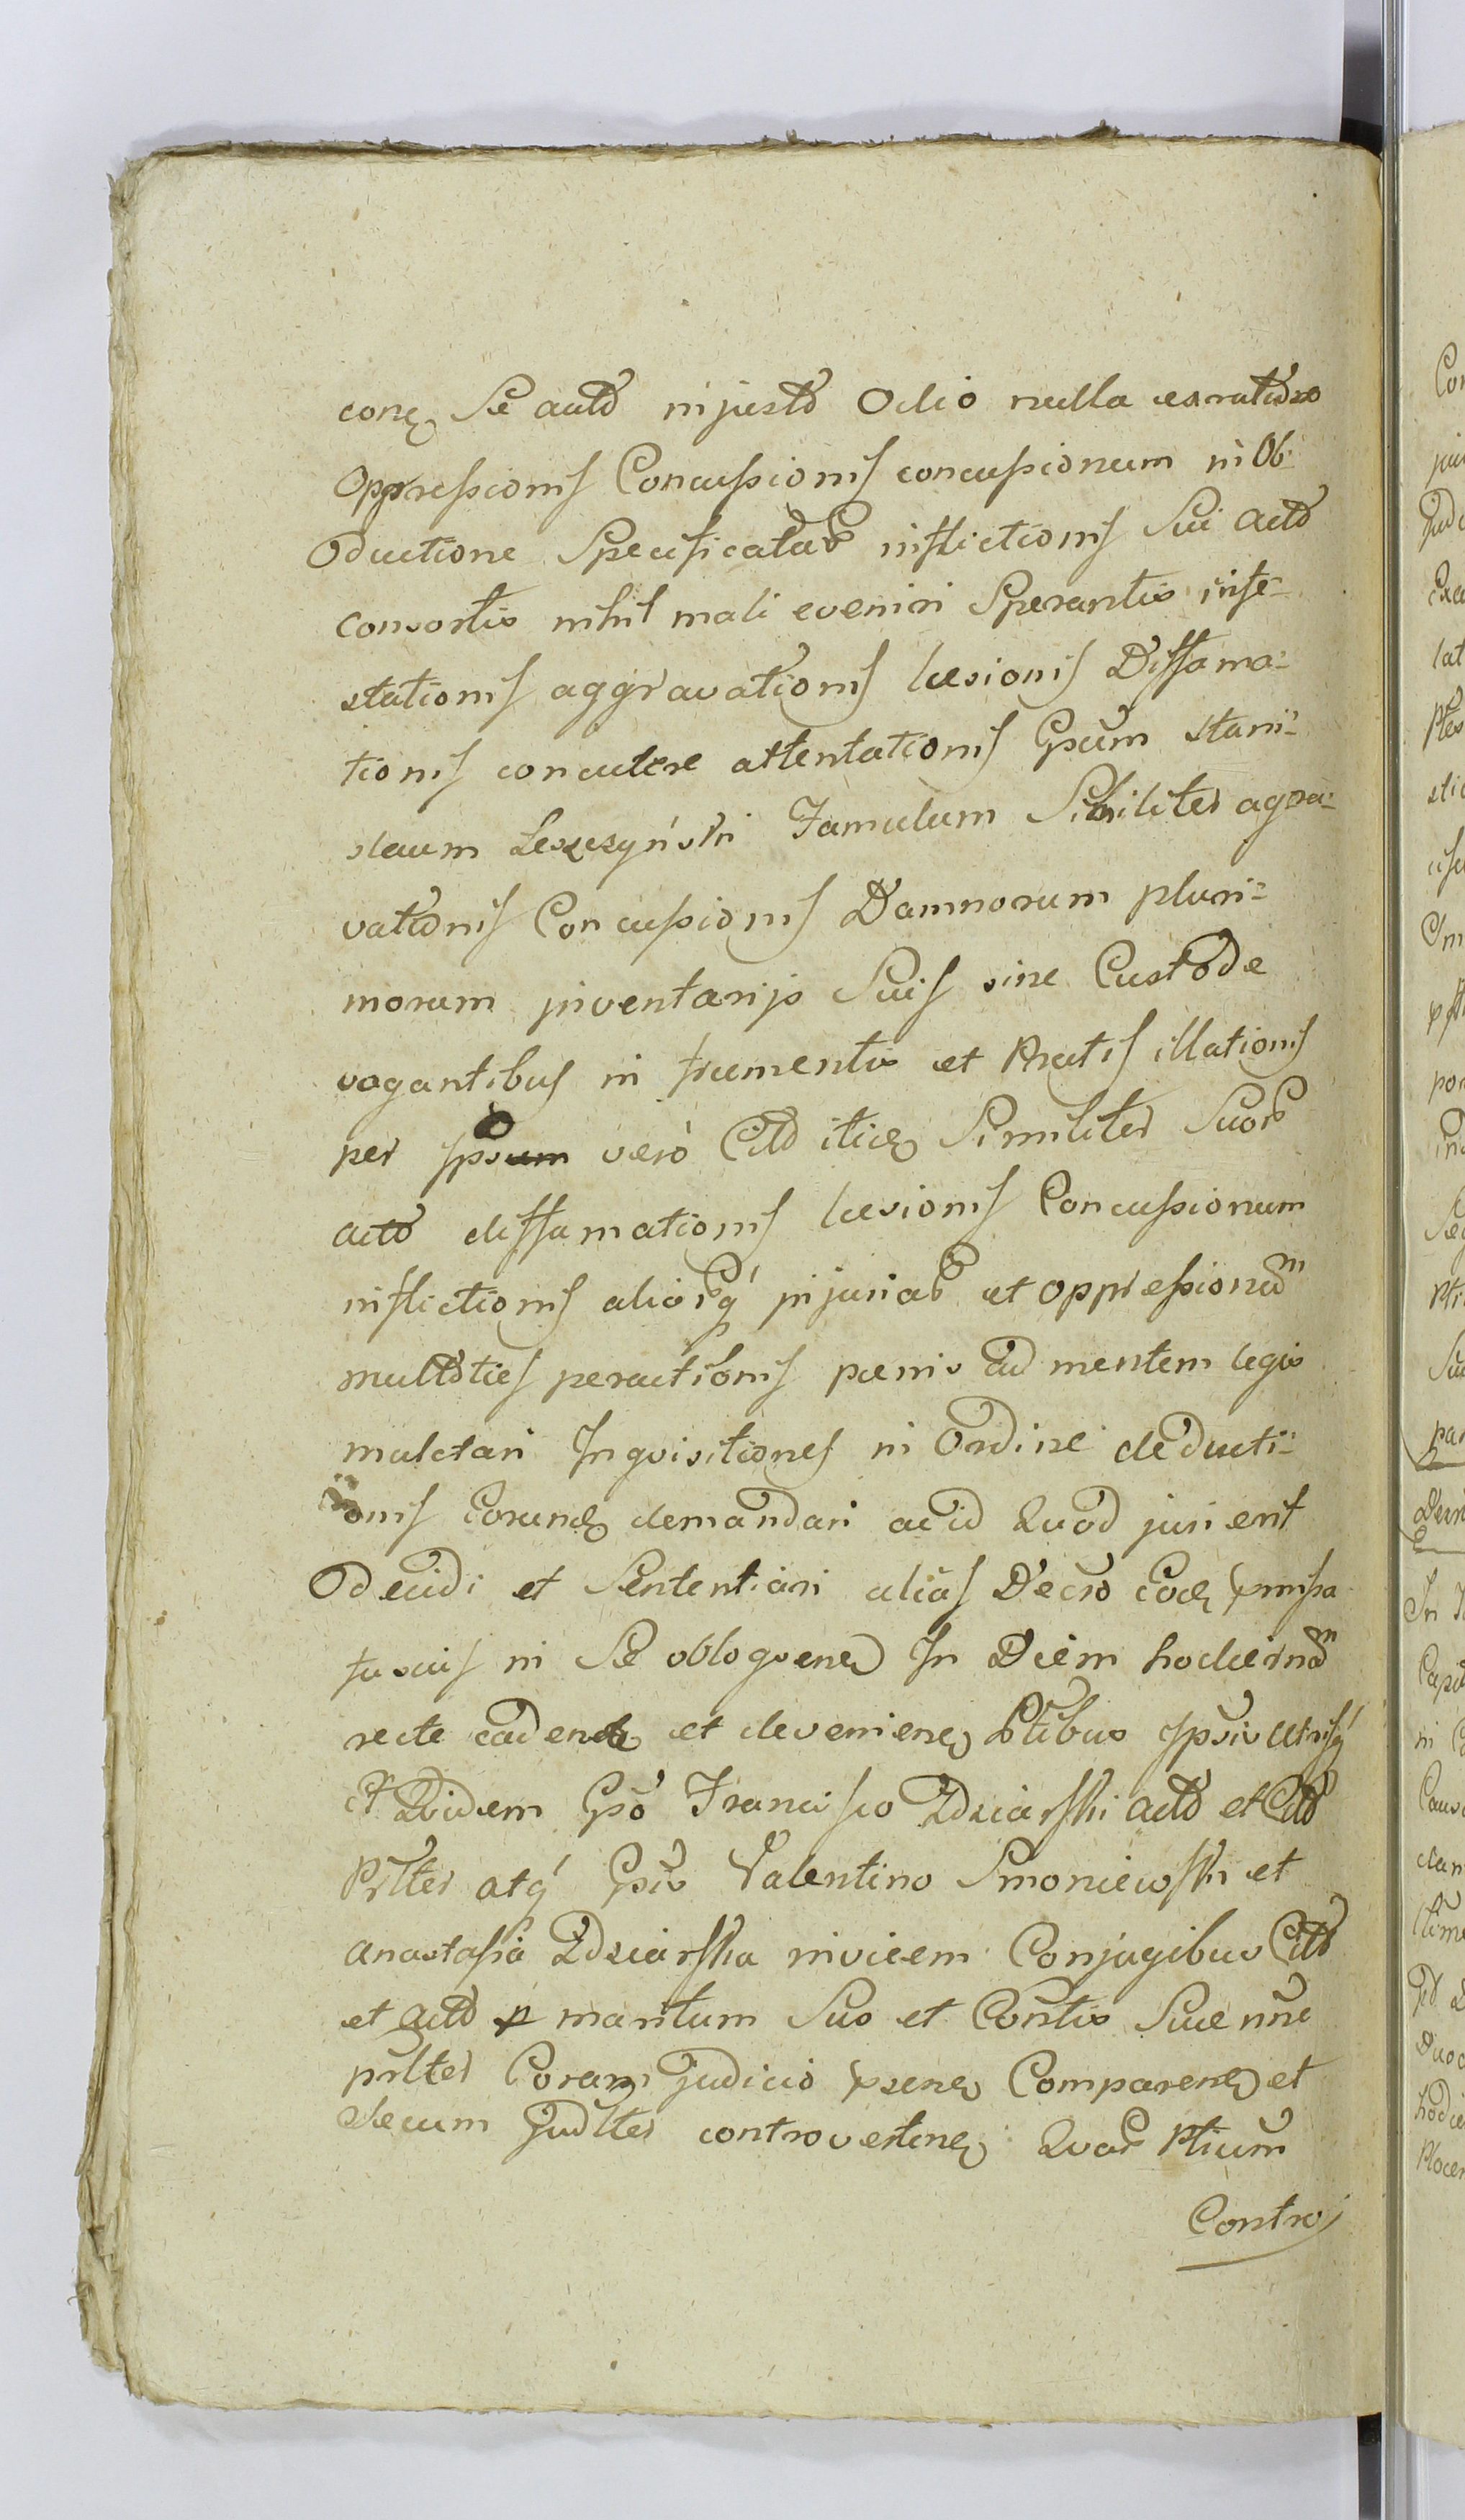 Se actõ injustõ Odio nulla
Oppressionis Concussionis concussionum in Ob
ductione Specificatar inflictionis Sui actõ
consortis nihil mali eveniri Sperantis infe-
stationis aggravationis læsionis Diffama-
tionis concutere attentationis Gsum stani-
slaum Leszczyński Famulum Similiter agra-
vationis Concussionis Damnorum pluri-
morum inventarijs Suis sine Custode
vagantibus in frumentis et Pratis illationis
per Ipsum verò Citõ itide Similiter Suor
actõ diffamationis læsionis Concussionum
inflictionis aliorq injuriar et oppressionum
multoties peractionis pœnis ad mentem legis
mulctari Inqvisitiones in Ordine deducti-
onis Eorund demandari ac id Qvod juri erit
Decidi et Sententiari alias Decro Eod pmissa
fusius in Se obloqvene In Diem hodiernam
recte cadene et deveniene Ptibus Ipsis utrisq
et Qvidem Gso Francisco Zdziarski actõ et Citõ
Prlter atq Gsis Valentino Smoniewski et
Anastasia Zdziarska invicem Conjugibus Citõ
et actõ p maritum Suo et Contis Suæ nne
prlter Coram Judicio psene Comparene et
Secum Judlter controvertene Qvar Ptium
Contro